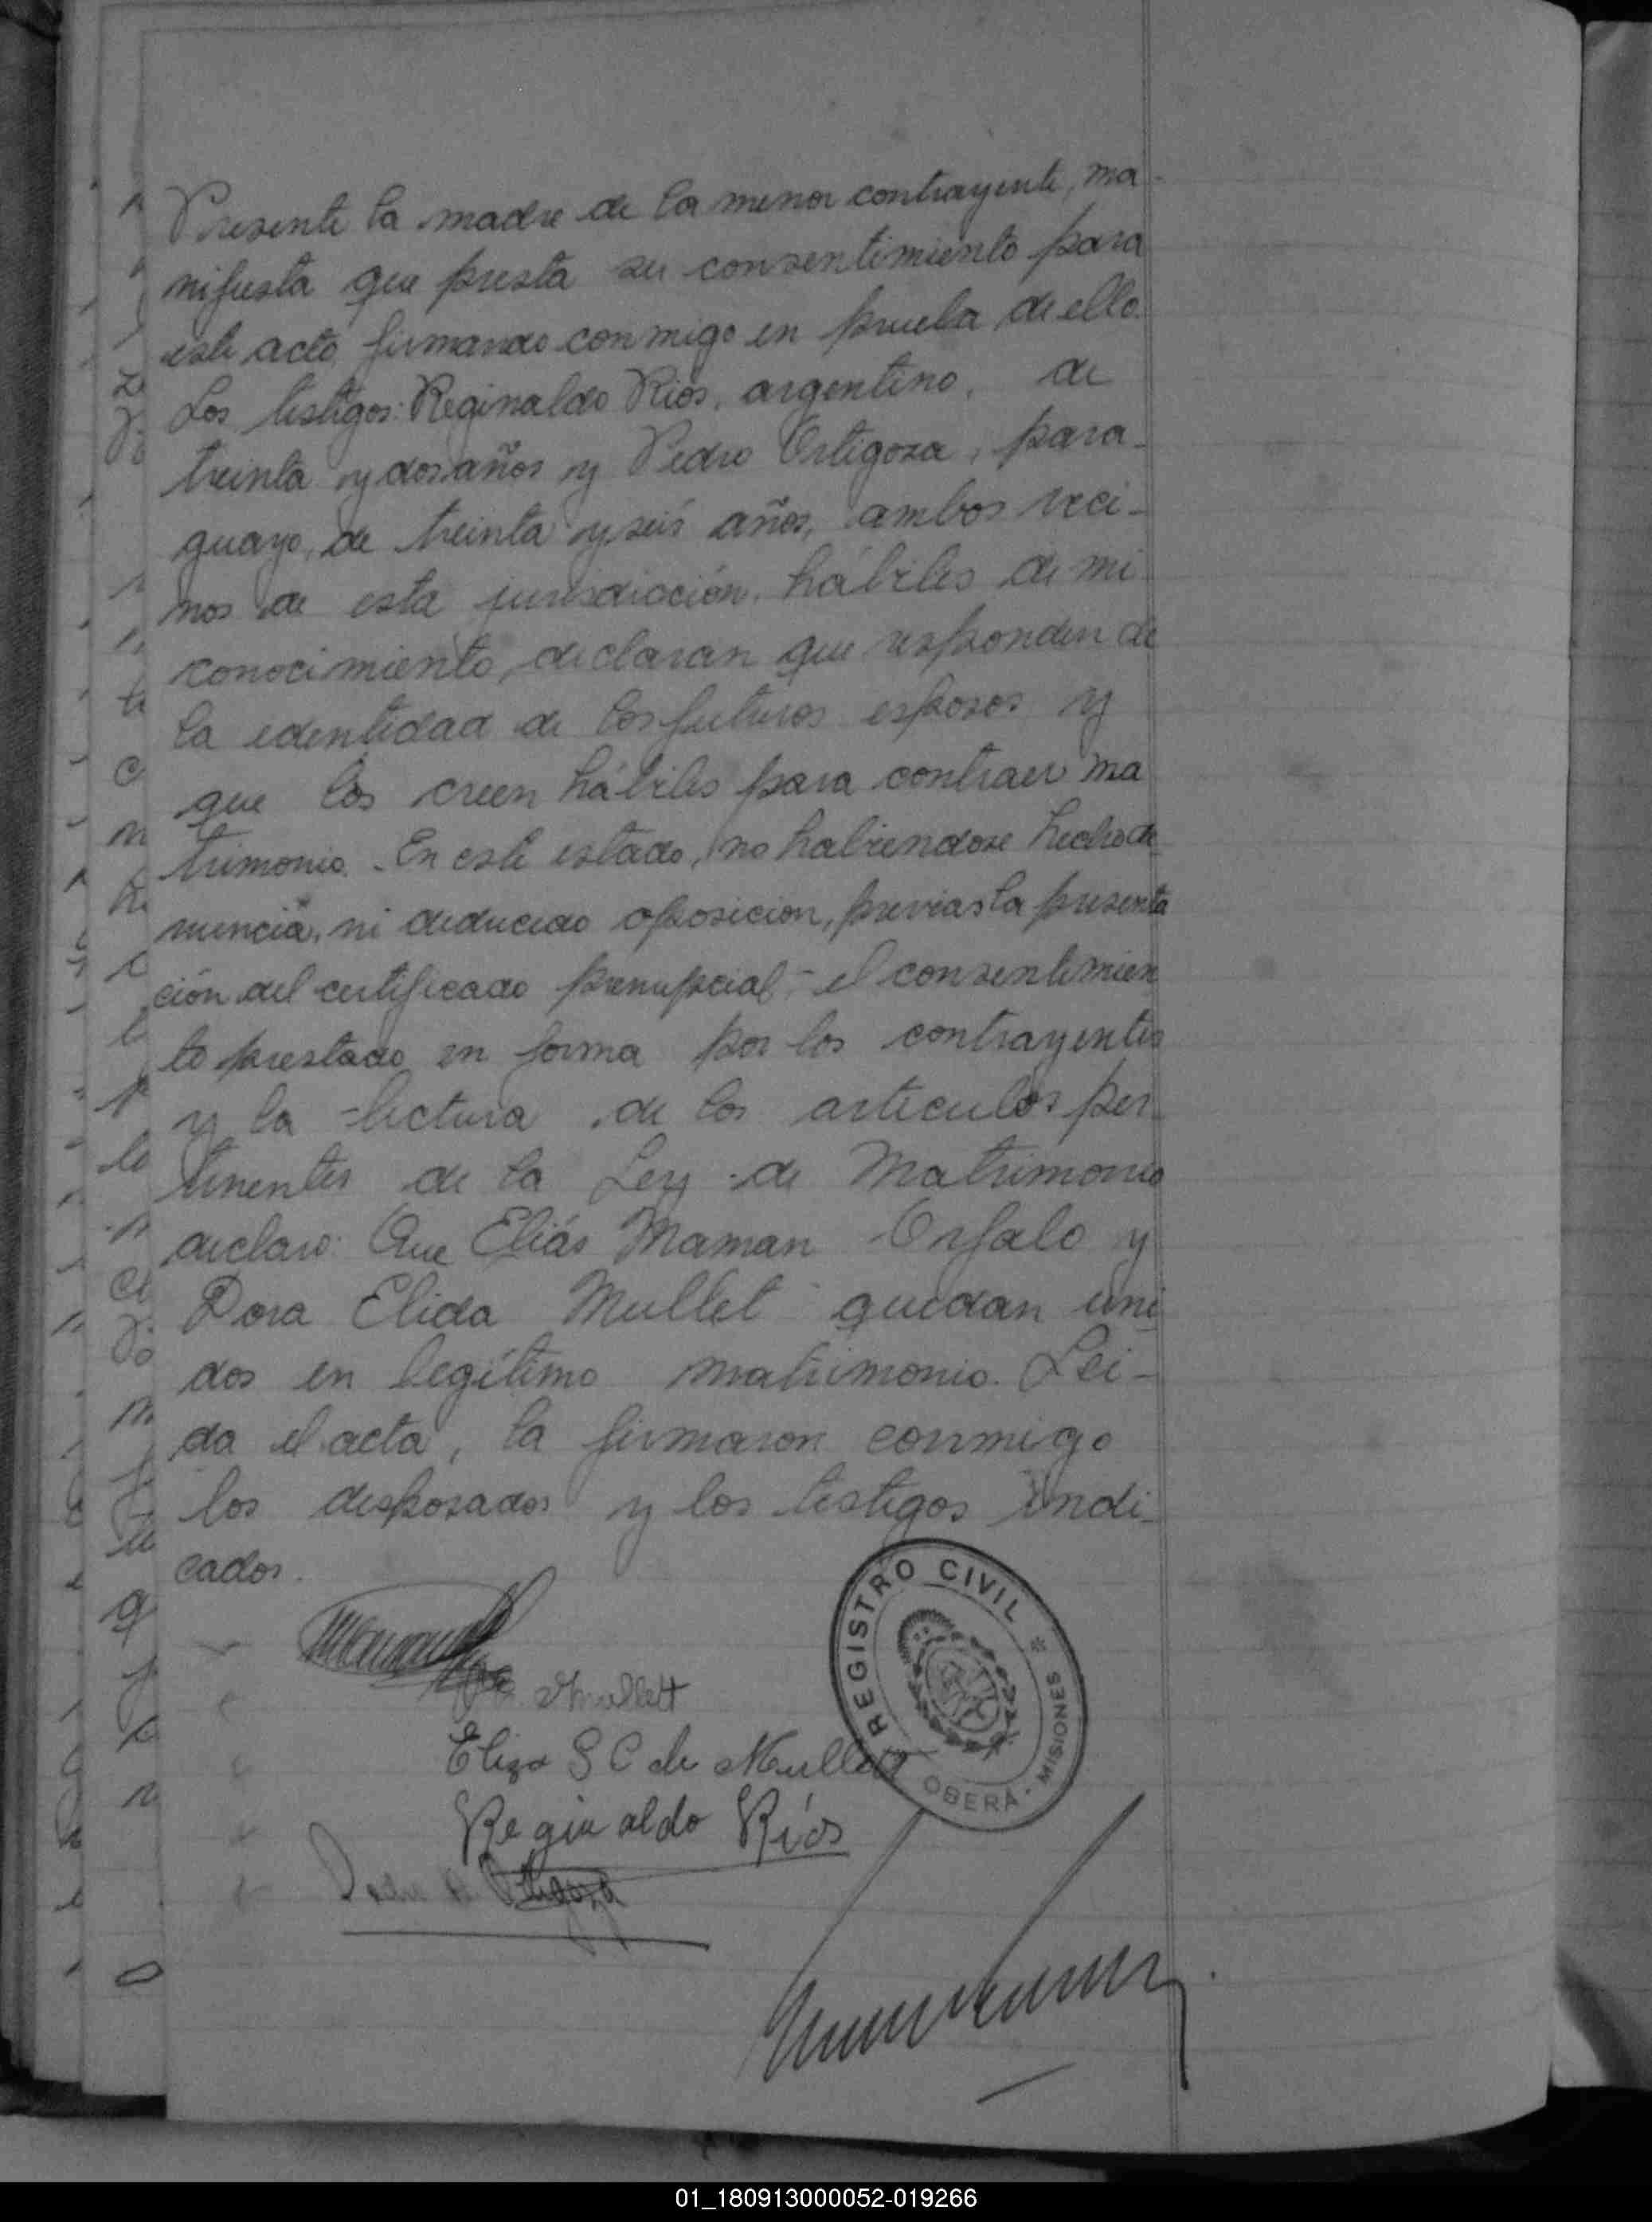 Presente la madre de la menor contrayente, ma-
nifiesta que presta su consentimiento para
este acto firmando conmigo en prueba de ello.
Los testigos: Reginaldo Rios, argentino, de
treinta y dos años y Pedro Ortigoza, para-
guayo, de treinta y seis años, ambos veci-
nos de esta jurisdicción, hábiles de mi
conocimiento, declaran que responden de
la edentidad de los futuros esposos y
que los creen hábiles para contraer ma
trimonio. En este estado, no habiendose hecho de-
nuncia, ni deducido oposicion, previas la presenta
ción del certificado prenupcial, el consentimien
to prestado en forma por los contrayentes
y la lectura de los articulos per
tinentes de la Ley de Matrimonio
declaro: Que Eliás Maman Orfalo y
Dora Elida Mullet quedan uni
dos en legítimo matrimonio. Leí-
da el acta, la firmaron conmigo
los desposados y los testigos indi-
cados.
Mullett
Eliza S C de Mullett
Reginaldo Ríos
Ortigoza
REGISTRO CIVIL
OBERA - MISIONES
01_180913000052-019266